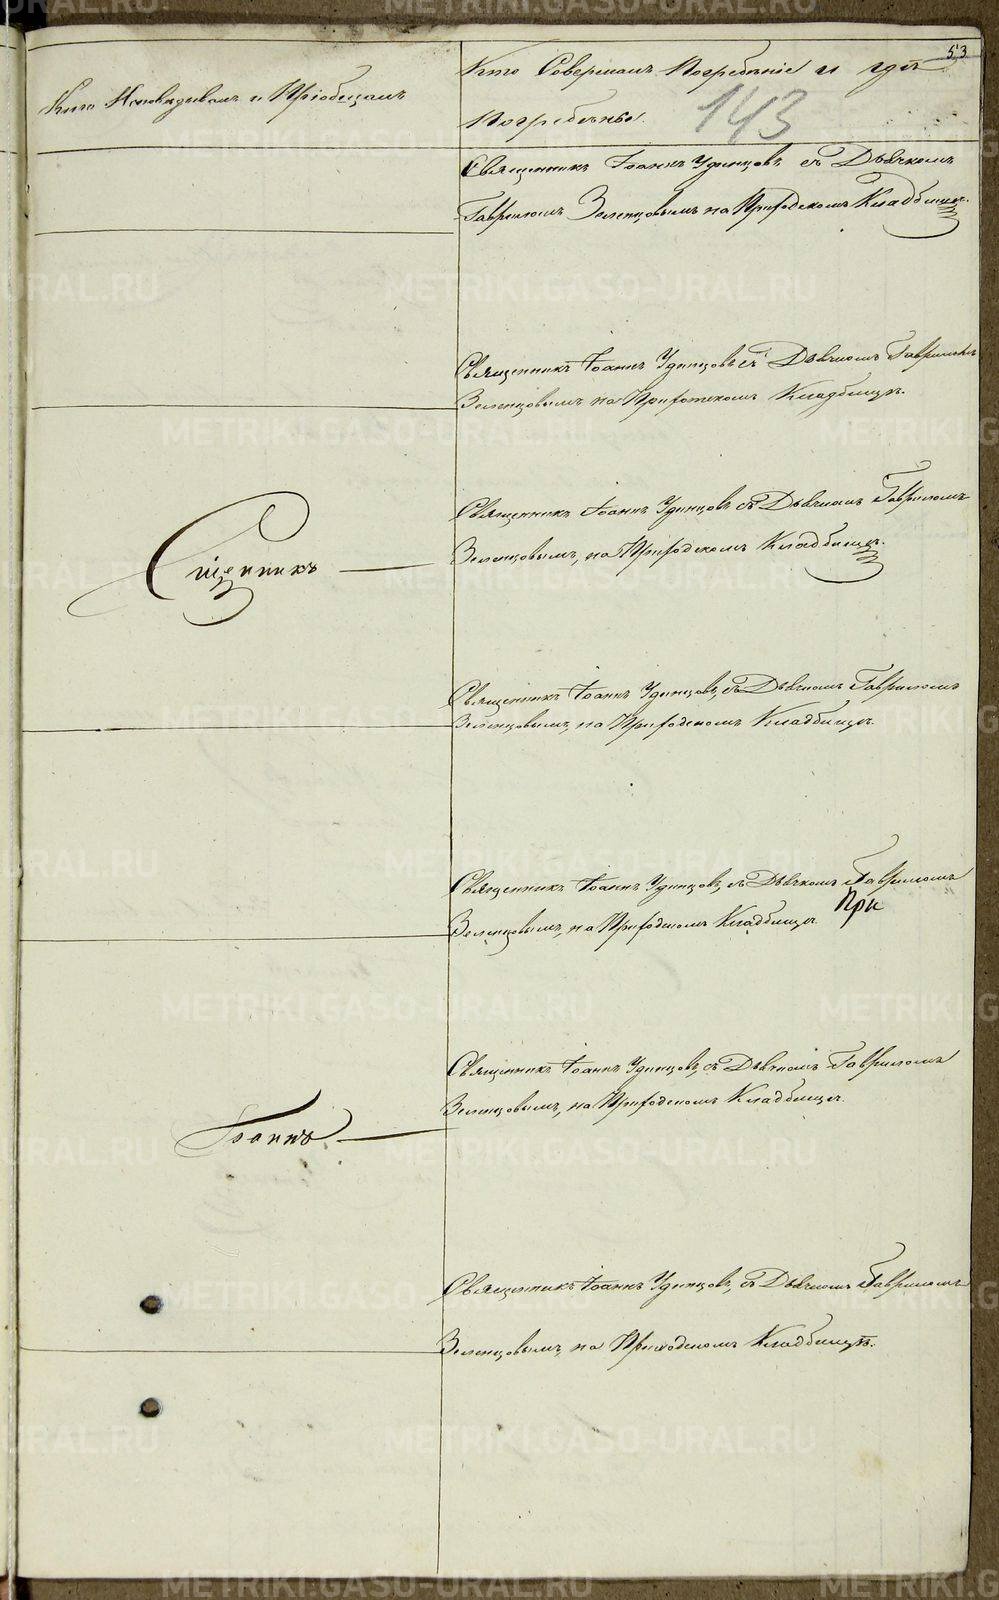 53
143
Кто Исповѣдывалъ и Пріобщалъ
Кто Совершалъ Погребѣніе и гдѣ
Погребены.
Священникъ Іоаннъ Удинцовъ съ Дьячкомъ
Гавриломъ Зеленцовымъ на Приходскомъ Кладбище.
Священникъ Іоаннъ Удинцовъ съ Дьячкомъ Гавриломъ
Зеленцовымъ на Приходскомъ Кладбищѣ.
Сщенникъ
Священникъ Іоаннъ Удинцовъ съ Дьячкомъ Гавриломъ
Зеленцовымъ, на Приходскомъ Кладбище.
Священникъ Іоаннъ Удинцовъ, съ Дьячкомъ Гавриломъ
Зеленцовымъ, на Приходскомъ Кладбищѣ.
Священникъ Іоаннъ Удинцовъ, съ Дьячкомъ Гавриломъ
Зеленцовымъ, на Приходскомъ Кладбище При
Священникъ Іоаннъ Удинцовъ, съ Дьячкомъ Гавриломъ
Зеленцовымъ, на Приходскомъ Кладбище.
Іоаннъ
Священникъ Іоаннъ Удинцовъ, съ Дьячкомъ Гавриломъ
Зеленцовымъ, на Приходскомъ Кладбищѣ.
METRIKI.GASO-URAL.RU